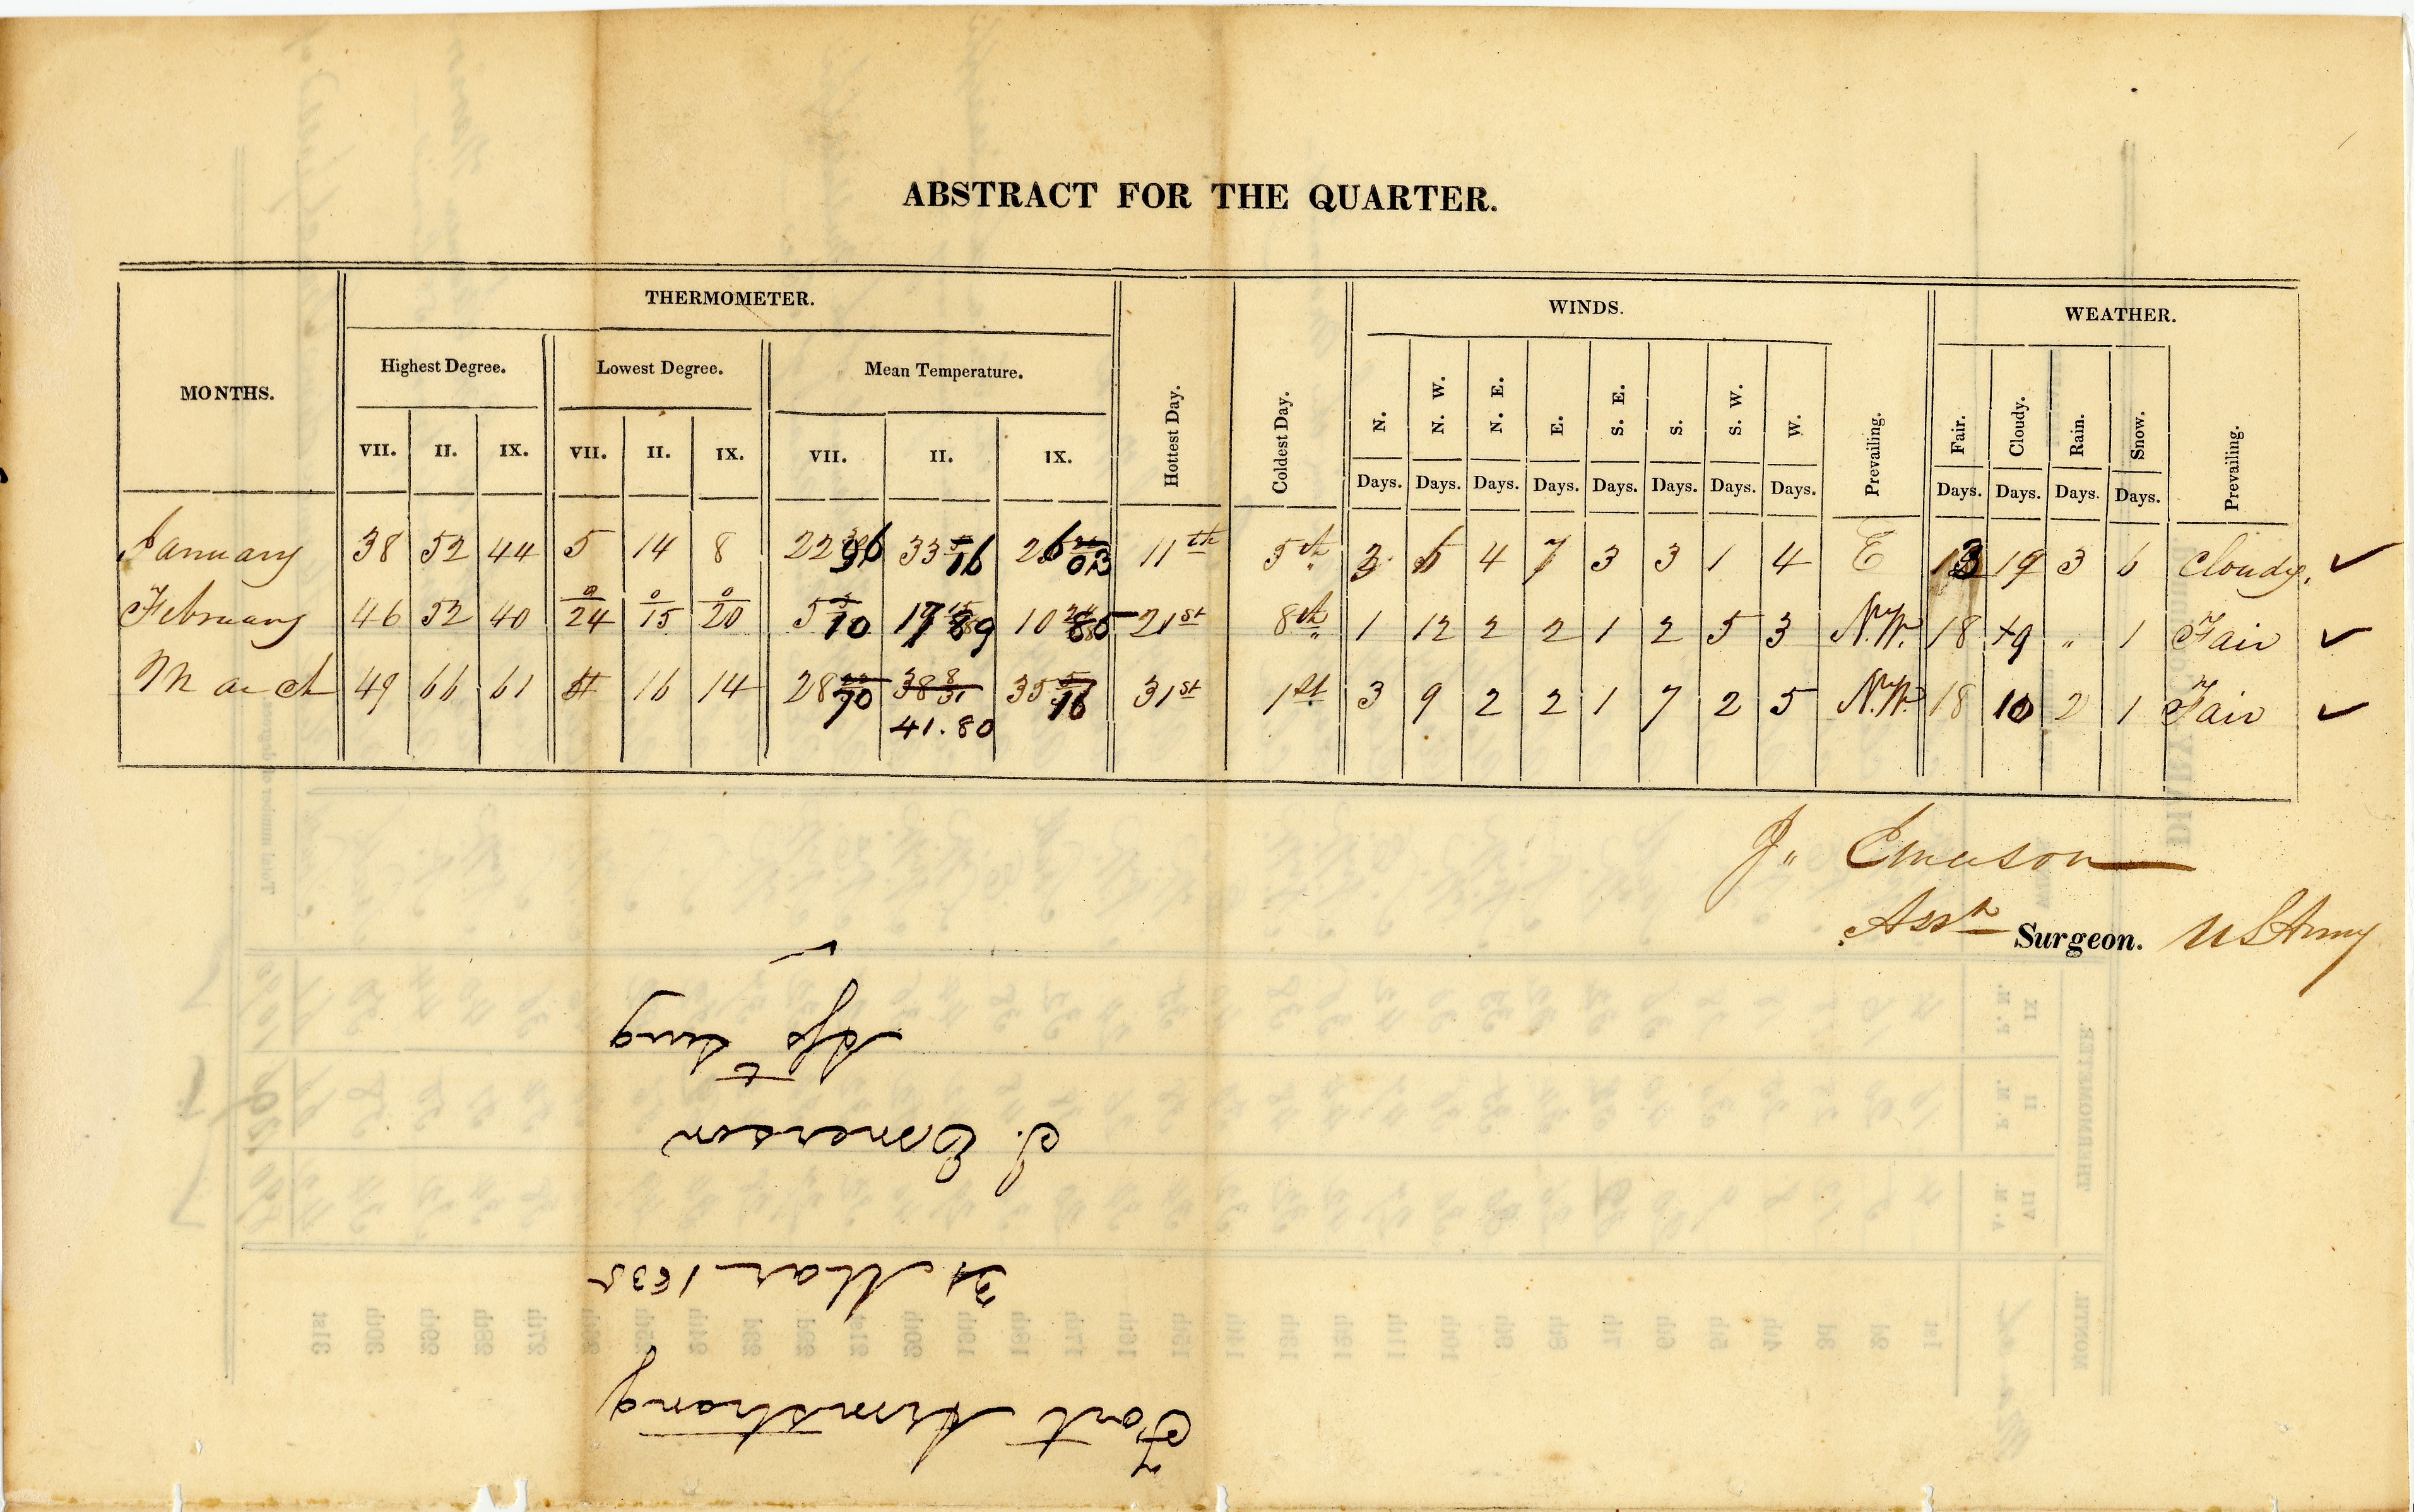 ABSTRACT FOR THE QUARTER.
MONTHS. THERMOMETER. Hottest Day. Coldest Day. WINDS. WEATHER.
Highest Degree. Lowest Degree. Mean Temperature. N. N. W. N. E. E. S. E. S. S. W. W. Prevailing. Fair. Cloudy. Rain. Snow. Prevailing.
VII. II. IX. VII. II. IX. VII. II. IX. Days. Days. Days. Days. Days. Days. Days. Days. Days. Days. Days. Days.
January 38 52 44 5 14 8 22 96 33 16 26 03 11th 5th 3 5 4 7 3 3 1 4 E 13 19 3 6 Cloudy. ✓
February 46 52 40 0/24 0/15 0/20 5 10 17 89 10 85 21st 8th 1 12 2 2 1 2 5 3 N.W. 18 9 " 1 Fair ✓
March 49 66 61 16 14 28 70 38 8/31 35 16 31st 1st 3 9 2 2 1 7 2 5 N.W. 18 10 2 1 Fair ✓
41.80
J" Emerson
Asst Surgeon. US Army
Fort Armstrong
31 Mar 1835
J. Emerson
Asst Surg